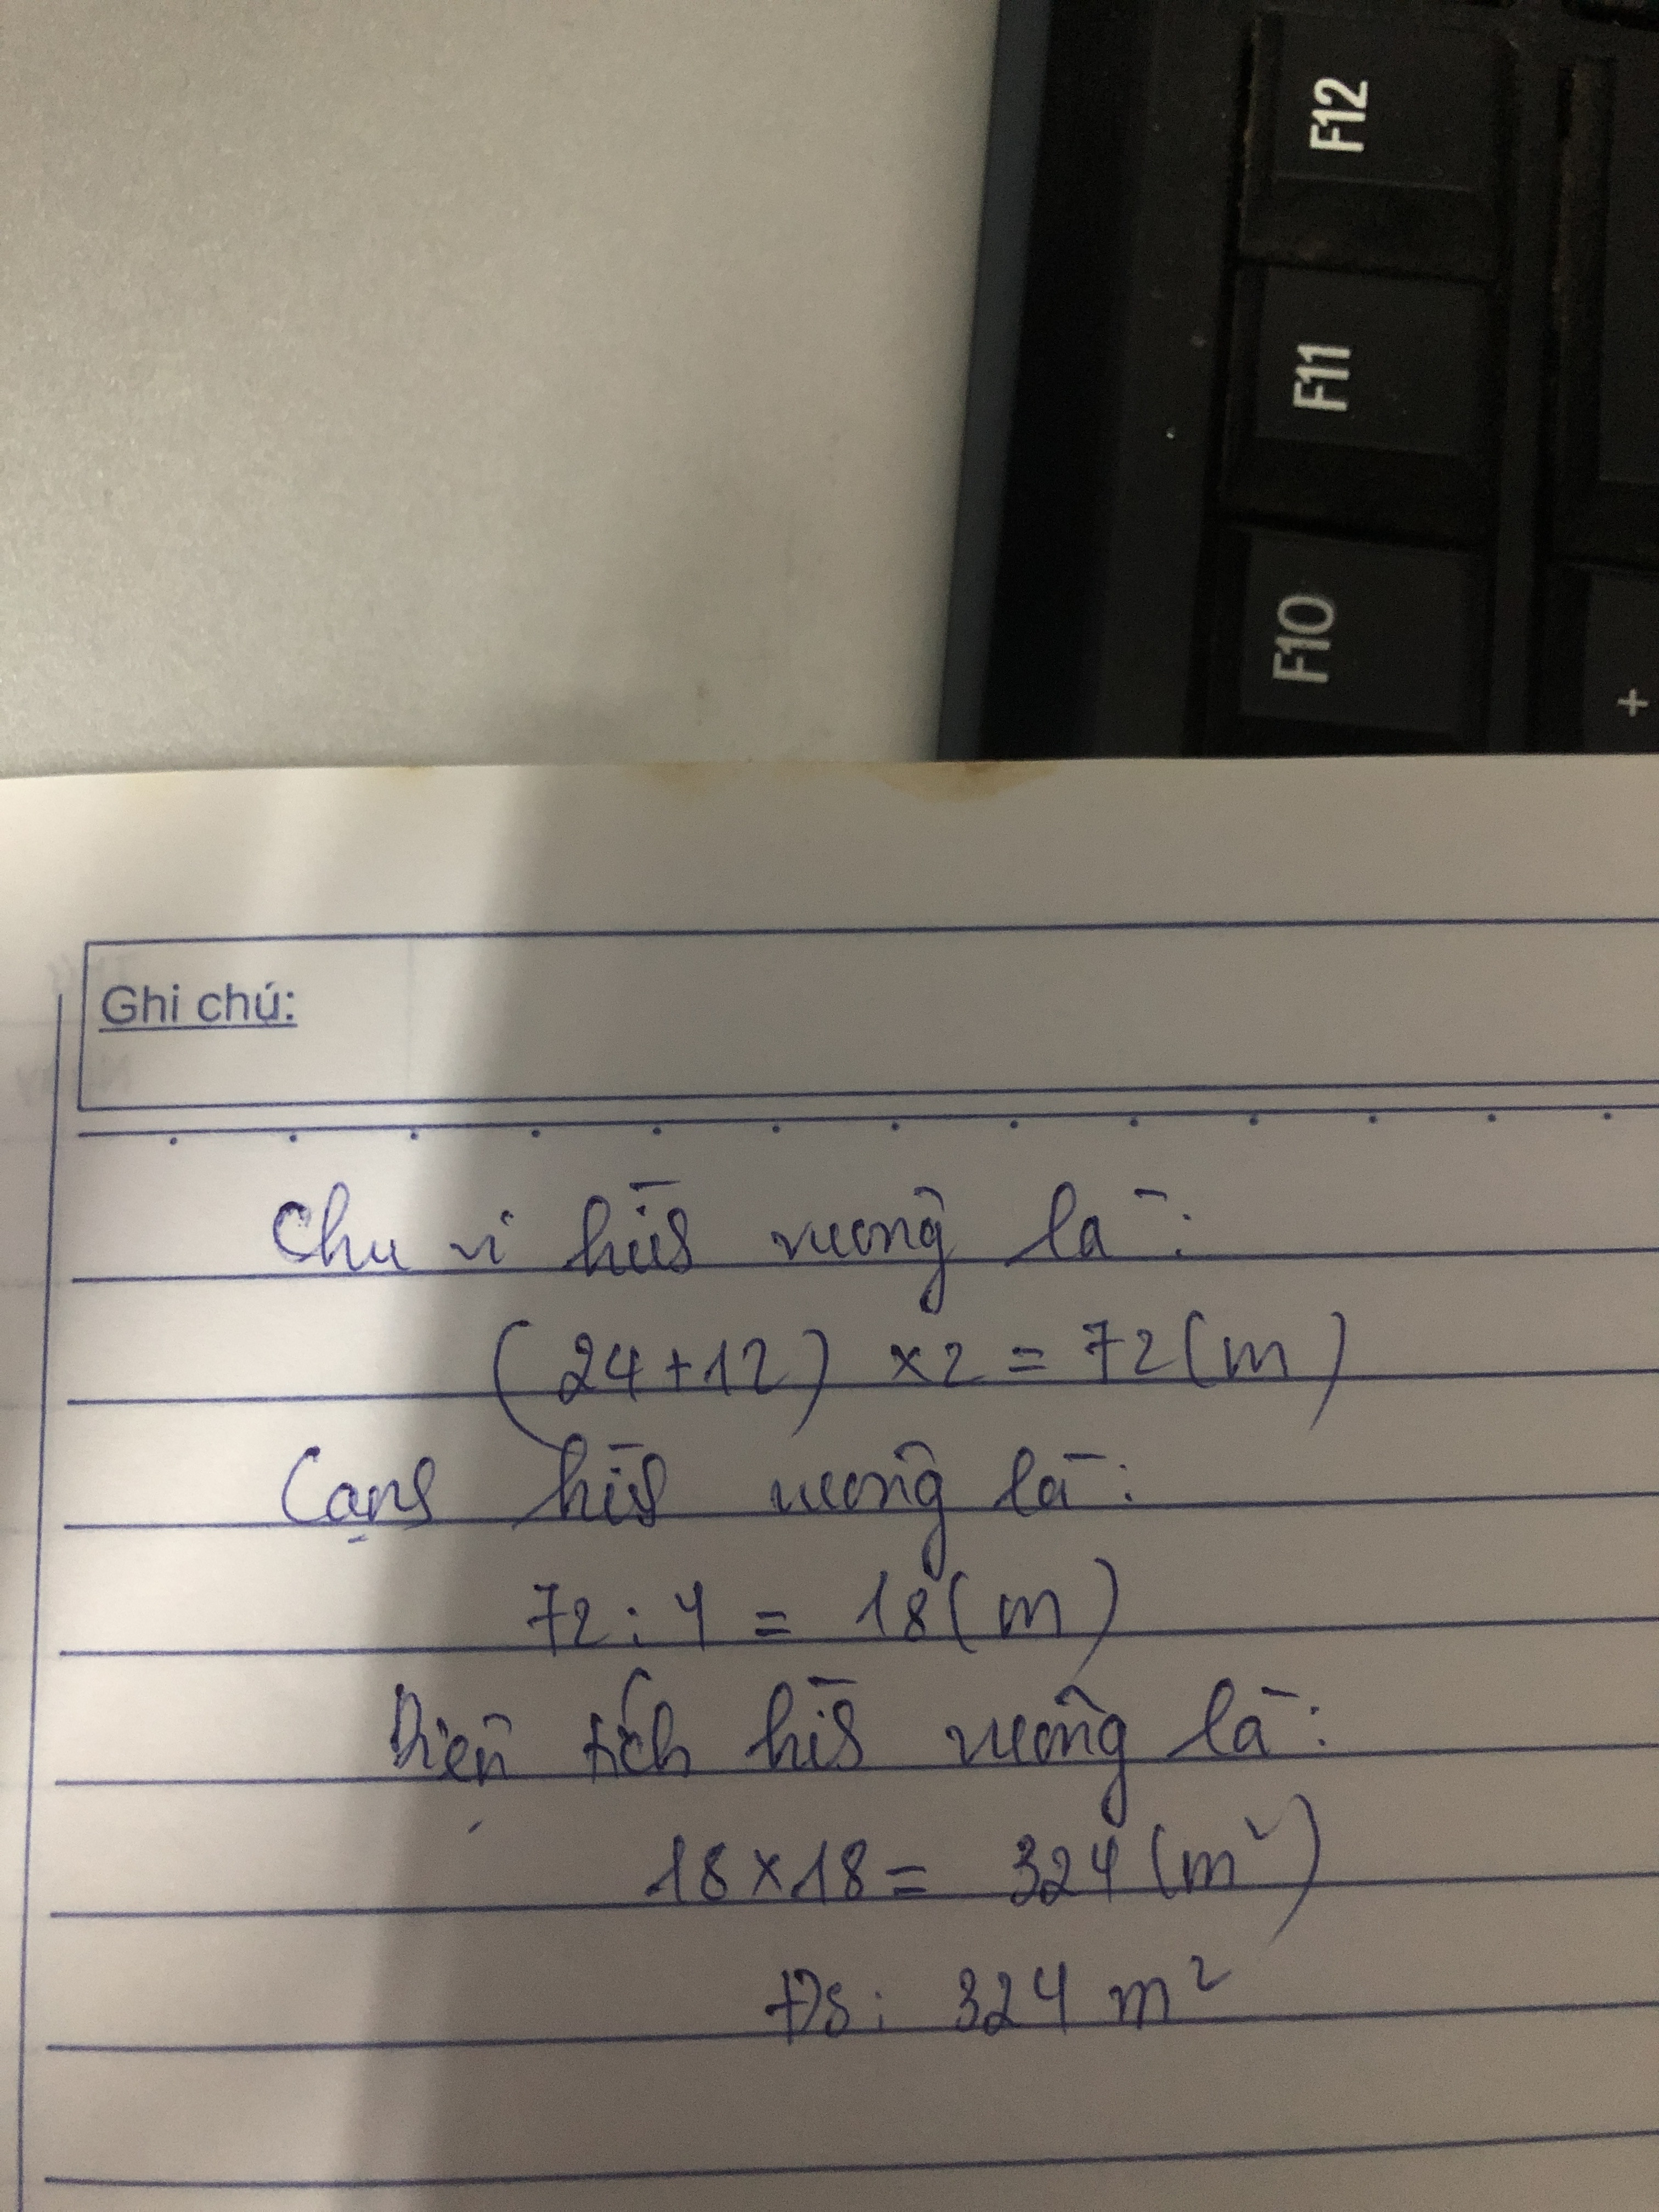 F12
F11
F10
+
Ghi chú:
Chu vi hình vuông là:
(24+12) x2 = 72(m)
Cạnh hình vuông là:
72 : 4 = 18(m)
Diện tích hình vuông là:
18 x 18 = 324 (m²)
ĐS: 324 m²